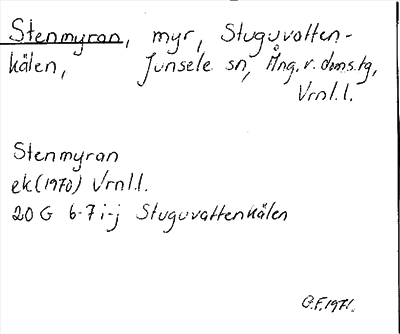 Stenmyran, myr, Stuguvatten-
kälen, Junsele sn, Ång. v. doms.tg,
Vrnl.l.
Stenmyran
ek (1970) Vrnl.l.
20 G 6-7 i-j Stuguvattenkälen
G.F. 1971.